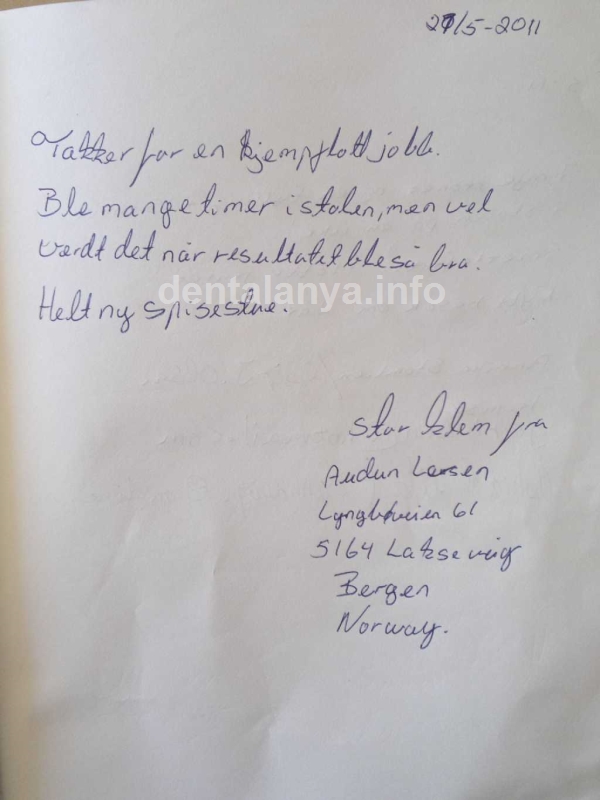 27/5-2011
Takker for en kjempflott jobb.
Ble mange timer i stolen, men vel
verdt det når resultatet ble så bra.
dentalanya.info
Helt ny spisestue.
Stor klem fra
Audun Larsen
61
5164 Laksevåg
Bergen
Norway.